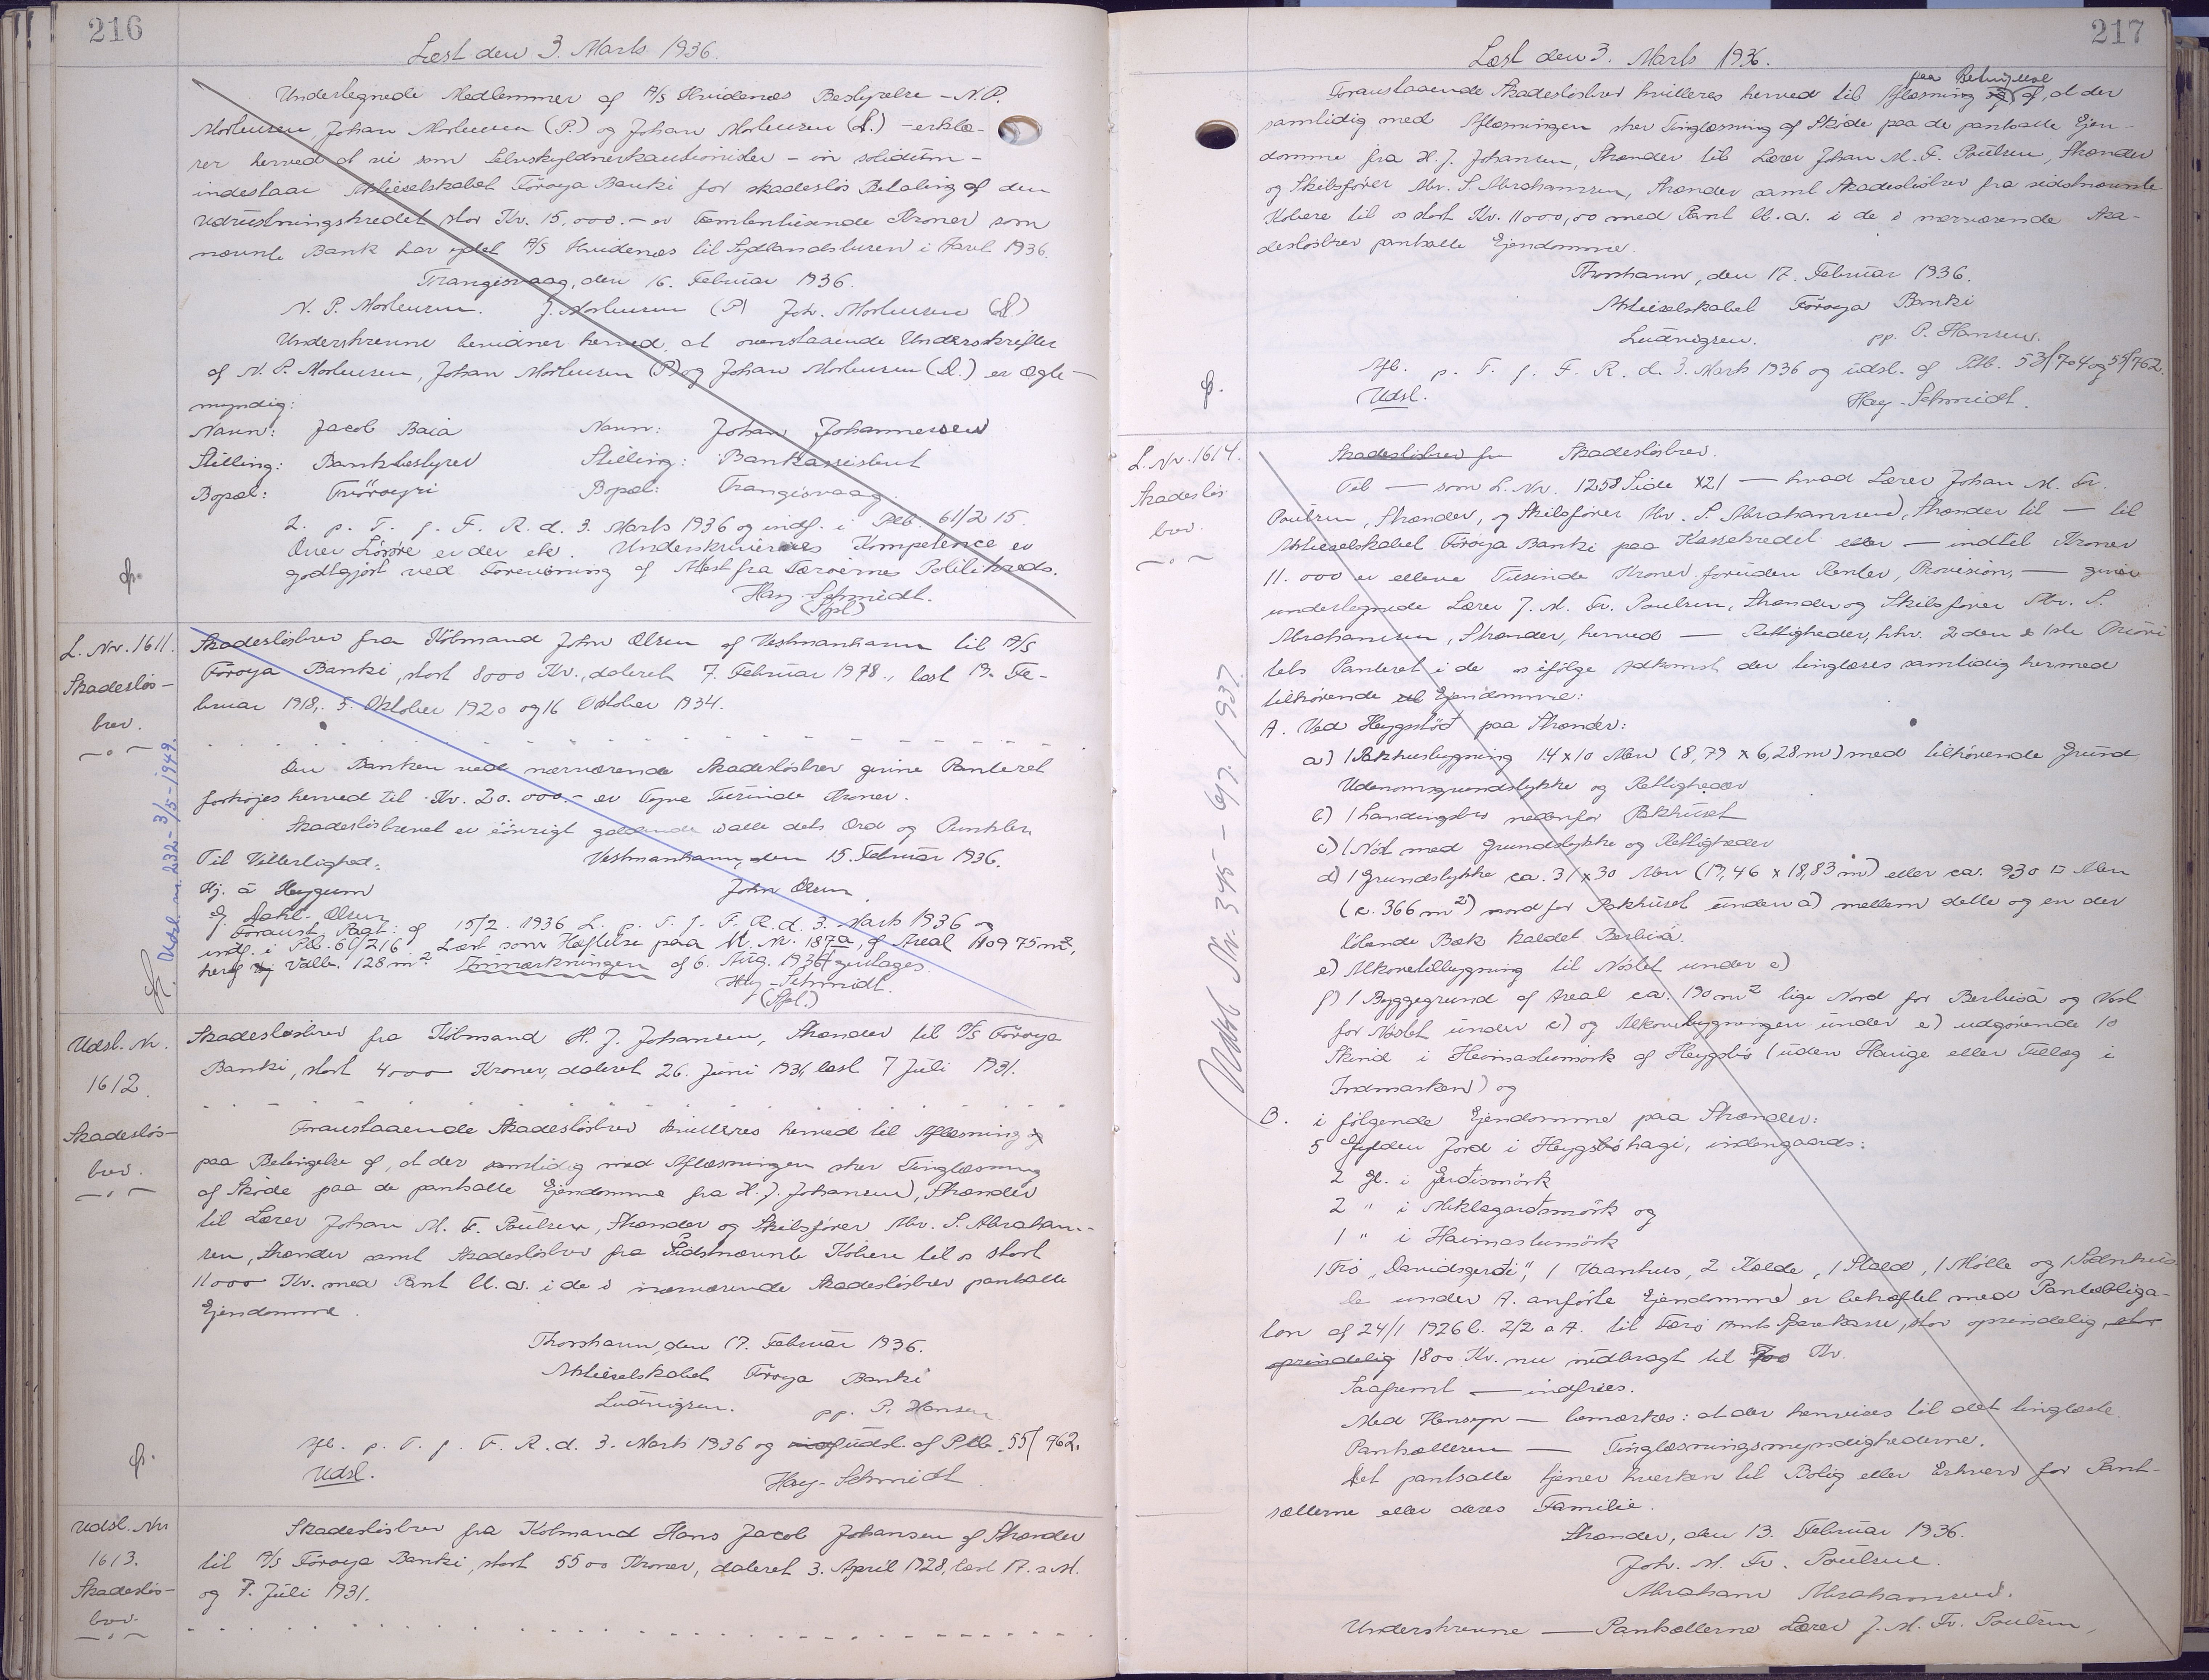 216
Læst den 3. Marts 1936.
Undertegnede Medlemmer af A/S Hvidenæs Bestyrelse - N.P.
Mortensen, Johan Mortensen (P.) og Johan Mortensen (D.) - erklæ-
rer herved at vi som Selvskyldnerkautionister - in solidum -
indestaar Aktieselskabet Föroya Banki for skadeslös Betaling af den
Udrustningskredit stor Kr. 15.000.- er Femtentusende Kroner som
nævnte Bank har ydet A/S Hvidenæs til Sydlandsturen i Foraaret 1936.
Trangisvaag, den 16. Februar 1936.
N. P. Mortensen. J. Mortensen (P) Joh. Mortensen (D)
Underskrevne bevidner herved, at ovenstaaende Underskrifter
af N. P. Mortensen, Johan Mortensen (P) og Johan Mortensen (D.) er Ægte -
myndig:
Navn: Jacob Baia Navn: Johan Johannesen
Stilling: Bankbestyrer Stilling: Bankassistent
Bopæl: Tvöroyri Bopæl: Trangisvaag
L. p. T. f. F. R. d. 3. Marts 1936 og indf. i Ptb. 61/215.
Over Lösöre er der etc. Underskrivernes Kompetence er
godtgjort ved Forevisning af Attest fra Færöernes Politikreds.
Hay-Schmidt.
(Spl)
L. Nr. 1611.
Skadeslös-
brev.
Skadeslösbrev fra Köbmand John Olsen af Vestmanhavn til A/S
Föroya Banki, stort 8000 Kr., dateret 7. Februar 1918., læst 19. Fe-
bruar 1918, 5. Oktober 1920 og 16 Oktober 1934.
Den Banken ved nærværende Skadeslösbrev givne Panteret
forhöjes herved til Kr. 20.000.- er Tyve Tusinde Kroner.
Skadeslösbrevet er iövrigt gældende i alle dets Ord og Punkter.
Til Vitterlighed: Vestmanhavn, den 15. Februar 1936.
Hj. á Heygum John Olsen
J. Dahl-Olsen
Foranst. Pagt: af 15/2. 1936 L. p. T. f. F. R. d. 3. Marts 1936 og
indf. i Ptb. 61/216. Læst som Hæftelse paa M. Nr. 187a, af Areal 1109 75 m²,
heraf Vallb. 128 m². Anmærkningen af 6. Aug. 1934 gentages.
Hay-Schmidt.
(Spl.)
Udsl. nr. 232 - 3/5 - 1949.
Udsl. Nr.
1612.
Skadeslös-
brev.
Skadeslösbrev fra Köbmand H. J. Johansen, Strænder til A/S Föroya
Banki, stort 4000 Kroner, dateret 26. Juni 1931, læst 7 Juli 1931.
Foranstaaende Skadeslösbrev kvitteres herved til Aflæsning
paa Betingelse af, at der samtidig med Aflæsningen sker Tinglæsning
af Sköde paa de pantsatte Ejendomme fra H. J. Johansen, Strænder
til Lærer Johan M. F. Poulsen, Strænder og Skibsförer Abr. S. Abraham-
sen, Strænder samt Skadeslösbrev fra Sidstnævnte Köbere til os stort
11000 Kr. med Pant bl. a. i de i nærværende Skadeslösbrev pantsatte
Ejendomme.
Thorshavn, den 17. Februar 1936.
Aktieselskabet Föroya Banki
Ludvigsen. pp. P. Hansen
Afl. p. T. f. F. R. d. 3. Marts 1936 og udsl. af Ptb. 55/962.
Udsl. Hay-Schmidt.
Udsl. Nr.
1613.
Skadeslös-
brev.
Skadeslösbrev fra Köbmand Hans Jacob Johansen af Strænder
til A/S Föroya Banki, stort 5500 Kroner, dateret 3. April 1928, læst 17. s. M.
og 7. Juli 1931.
217
Læst den 3. Marts 1936.
paa Betingelse
Foranstaaende Skadeslösbrev kvitteres herved til Aflæsning og af, at der
samtidig med Aflæsningen sker Tinglæsning af Sköde paa de pantsatte Ejen-
domme fra H. J. Johansen, Strænder til Lærer Johan M. F. Poulsen, Strænder
og Skibsförer Abr. S. Abrahamsen, Strænder samt Skadeslösbrev fra sidstnævnte
Köbere til os stort Kr. 11000,00 med Pant bl. a. i de i nærværende Ska-
deslösbrev pantsatte Ejendomme.
Thorshavn, den 17. Februar 1936.
Aktieselskabet Föroya Banki
Ludvigsen. pp. P. Hansen.
Afl. p. T. f. F. R. d. 3. Marts 1936 og udsl. af Ptb. 53/704 og 55/962.
Udsl. Hay-Schmidt.
L. Nr. 1614.
Skadeslös
brev.
Skadeslösbrev fra Skadeslösbrev.
Til — som L. Nr. 1258 Side 421 — hvad Lærer Johan M. Fr.
Poulsen, Strænder, og Skibsförer Abr. S. Abrahamsen, Strænder til — til
Aktieselskabet Föroya Banki paa Kassekredit eller — indtil Kroner
11.000 er elleve Tusinde Kroner foruden Renter, Provision, — giver
undertegnede Lærer J. M. Fr. Poulsen, Strænder og Skibsförer Abr. S.
Abrahamsen, Strænder, herved — Rettigheder, hhv. 2den & 1ste Priori
tets Panteret i de os ifölge Adkomst der tinglæses samtidig hermed
tilhörende Ejendomme:
A. Ved Heygsstöð paa Strænder:
a) 1 Pakhusbygning 14 x 10 Alen (8,79 x 6,28 m) med tilhörende Grund
Udenomsgrundstykke og Rettigheder
b) 1 Landingsbro nedenfor Pakhuset
c) 1 Nöst med Grundstykke og Rettigheder
d) 1 Grundstykke ca. 31 x 30 Alen (19,46 x 18,83 m) eller ca. 930 □ Alen
(c. 366 m²) nord for Pakhuset under a) mellem dette og en der
löbende Bæk kaldet Berluá.
e) Alkovetilbygning til Nöstet under c)
f) 1 Byggegrund af Areal ca. 190 m² lige Nord for Berluá og Vest
for Nöstet under c) og Alkovebygningen under e) udgörende 10
Skind i Heimastumörk af Heygsbö (uden Hauge eller Tillæg i
Indmarken) og
B. i fölgende Ejendomme paa Strænder:
5 Gylden Jord i Heygsbóhagi, indengaards:
2 Gl. i Gerdismörk
2 " i Miklagardsmörk og
1 " i Heimastumörk
1 Trö "Davidsgerdi", 1 Vaanhus, 2 Kælde, 1 Stald, 1 Mölle og 1 Sodnhus
De under A. anförte Ejendomme er behæftet med Pantobliga-
tion af 24/1 1926 l. 2/2 s. A. til Færö Amts Sparekasse, stor oprindelig, stor
oprindelig 1800 Kr. nu nedbragt til 700 Kr.
Saafremt — indfries.
Med Hensyn — bemærkes: at der henvises til det tinglæste.
Panthaveren — Tinglæsningsmyndighederne.
Det pantsatte tjener hverken til Bolig eller Erhverv for Pant-
sætterne eller deres Familie.
Strænder, den 13. Februar 1936.
Joh. M. Fr. Poulsen.
Abraham Abrahamsen.
Underskrevne — Pantsætterne Lærer J. M. Fr. Poulsen,
Udsl. Nr. 345 - 6/7. 1937.